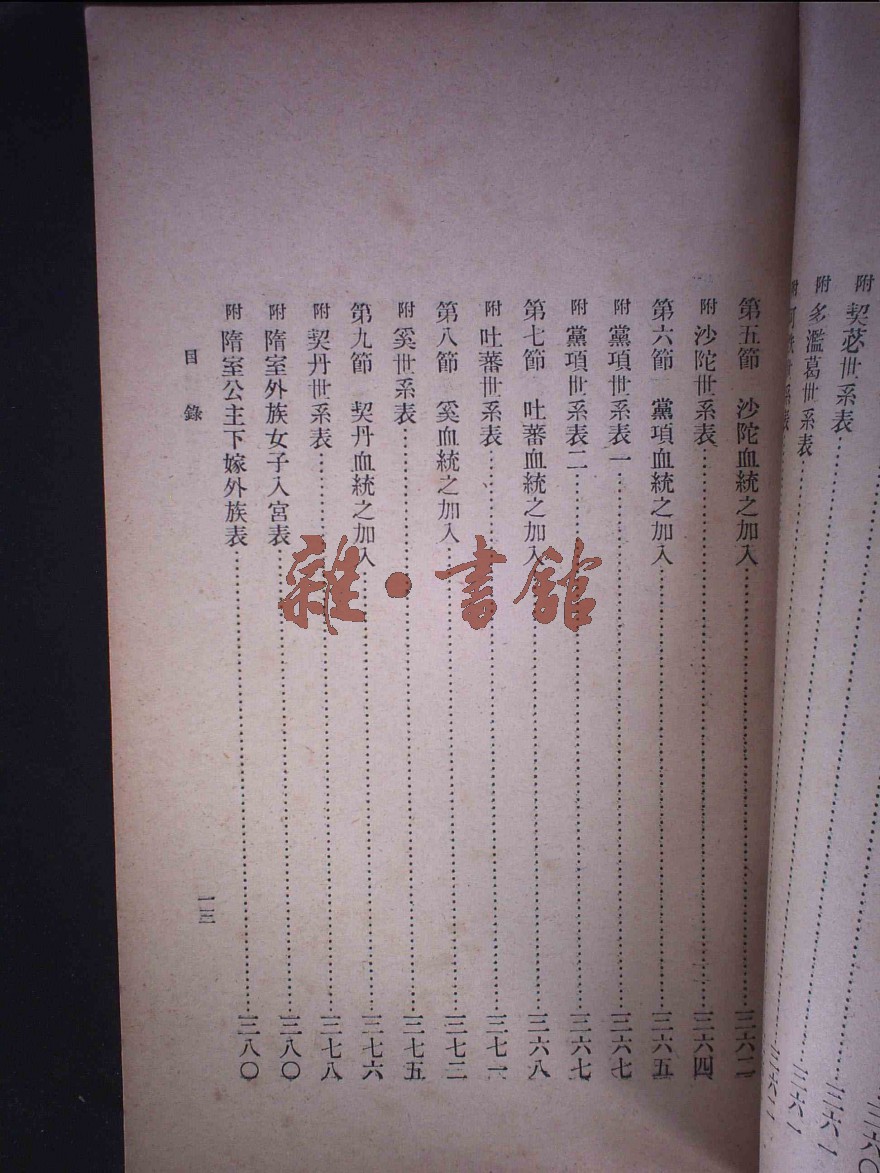 附 契苾世系表…………三六〇
附 多濫葛世系表…………三六一
世系表…………三六一
第五節 沙陀血統之加入…………三六二
附 沙陀世系表…………三六四
第六節 黨項血統之加入…………三六五
附 黨項世系表一…………三六七
附 黨項世系表二…………三六七
第七節 吐蕃血統之加入…………三六八
附 吐蕃世系表…………三七一
第八節 奚血統之加入…………三七二
附 奚世系表…………三七五
第九節 契丹血統之加入…………三七六
附 契丹世系表…………三七八
附 隋室外族女子入宮表…………三八〇
附 隋室公主下嫁外族表…………三八〇
目錄
一三
雜·書館